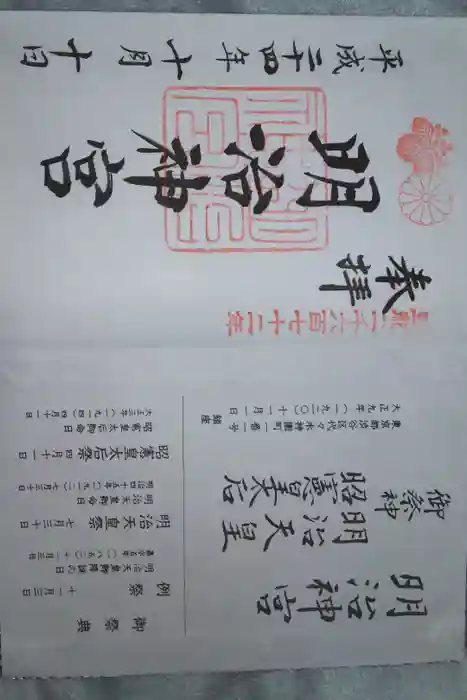 明治神宮
御祭神
明治天皇
昭憲皇太后
鎮座
大正九年(一九二〇)十一月一日
東京都渋谷区代々木神園町一番一号
御祭典
例祭 十一月三日
明治天皇御降誕の日
嘉永五年(一八五二)十一月三日
明治天皇祭 七月三十日
明治天皇御命日
明治四十五年(一九一二)七月三十日
昭憲皇太后祭 四月十一日
昭憲皇太后御命日
大正三年(一九一四)四月十一日
皇紀二千六百七十二年
奉拝
明治神宮
平成二十四年十月十日